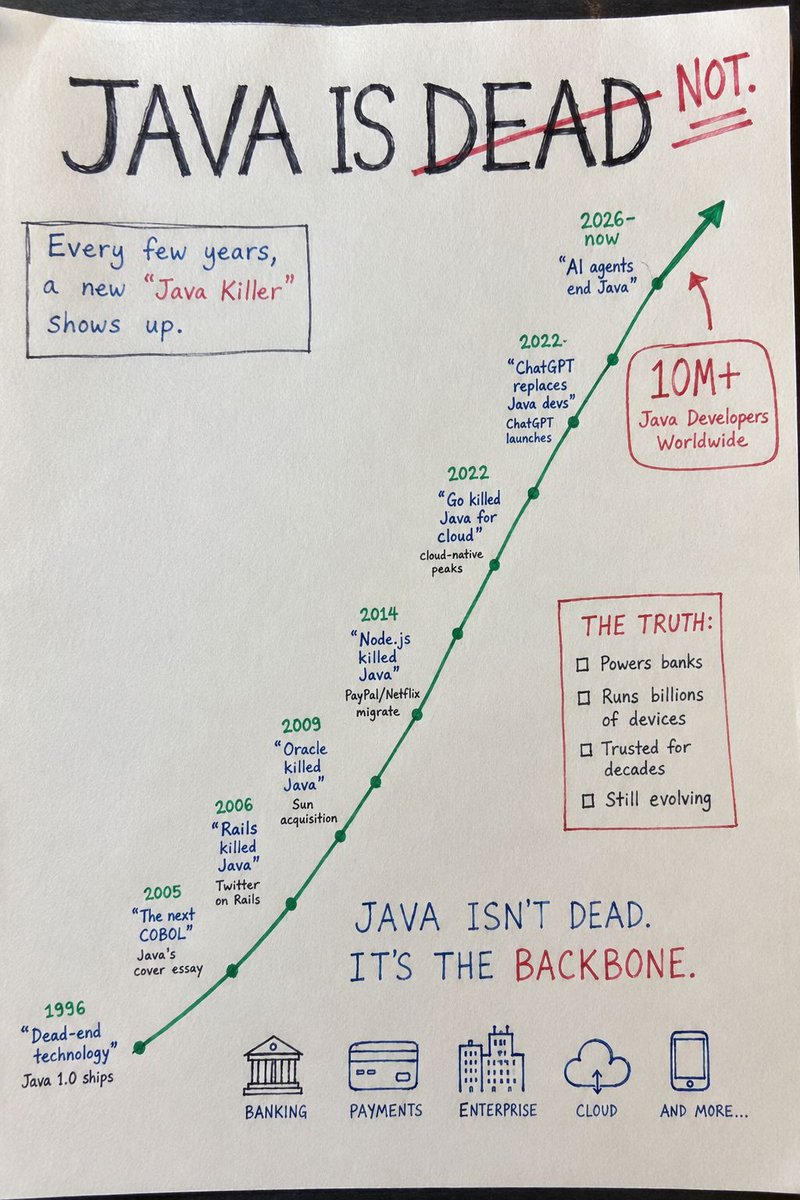 JAVA IS DEAD NOT.
Every few years,
a new "Java Killer"
shows up.
2026-
now
"AI agents
end Java"
2022-
"ChatGPT
replaces
Java devs"
ChatGPT
launches
10M+
Java Developers
Worldwide
2022
"Go killed
Java for
cloud"
cloud-native
peaks
2014
"Node.js
killed
Java"
PayPal/Netflix
migrate
2009
"Oracle
killed
Java"
Sun
acquisition
2006
"Rails
killed
Java"
Twitter
on Rails
2005
"The next
COBOL"
Java's
cover essay
1996
"Dead-end
technology"
Java 1.0 ships
THE TRUTH:
Powers banks
Runs billions
of devices
Trusted for
decades
Still evolving
JAVA ISN'T DEAD.
IT'S THE BACKBONE.
BANKING
PAYMENTS
ENTERPRISE
CLOUD
AND MORE...